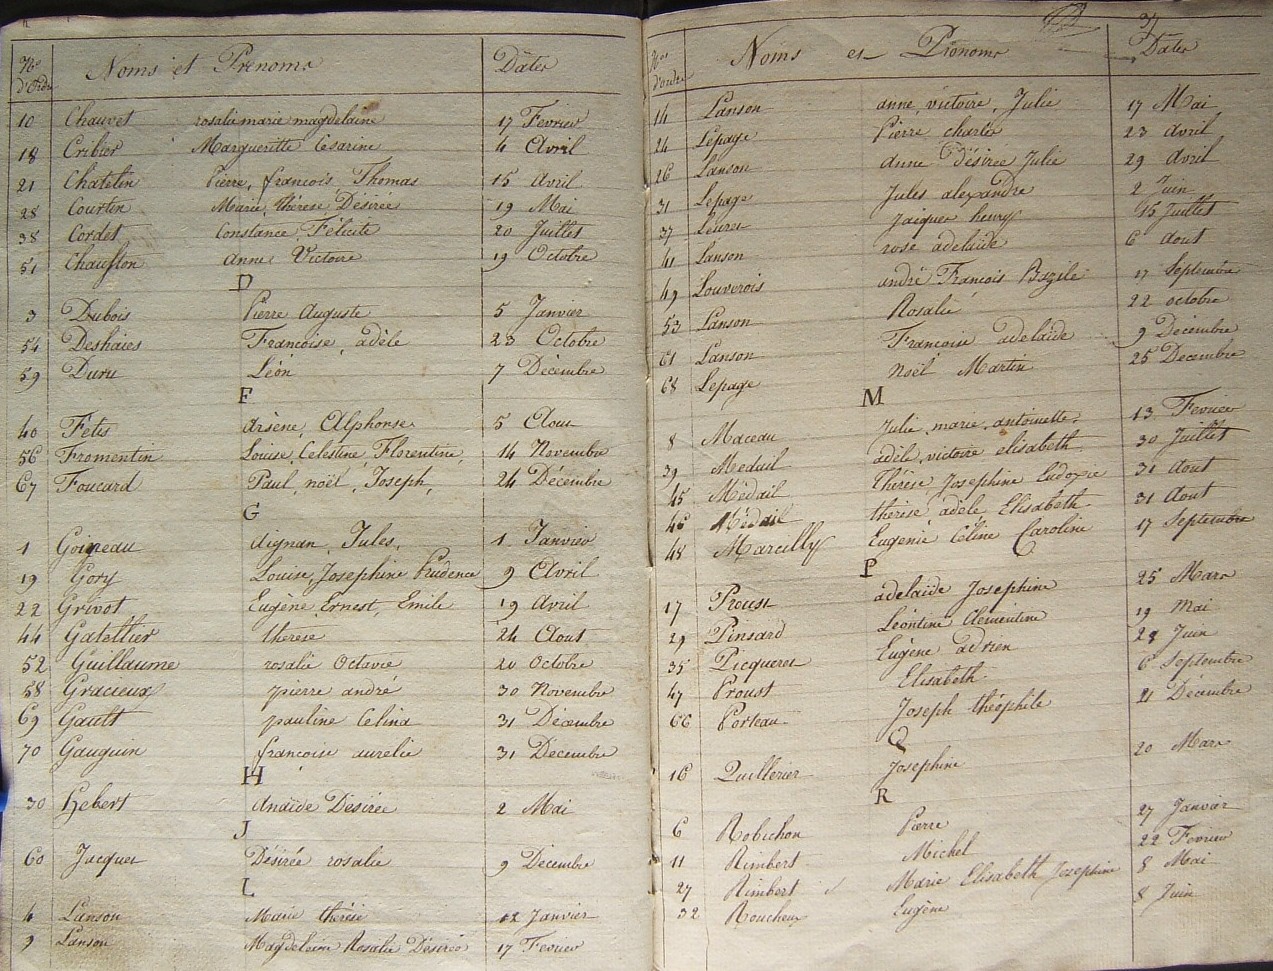 Nos d'Ordre Noms et Prénoms Dates
10 Chauvet rosalie marie magdelaine 17 Fevrier
18 Cribier Margueritte Césarine 4 Avril
21 Chatelin Pierre, françois Thomas 15 Avril
28 Courtin Marie, thérese Désirée 19 Mai
38 Cordet Constance, Félicité 20 Juillet
51 Anne Victoire 19 Octobre
D
3 Dubois Pierre Auguste 5 Janvier
54 Deshaies Francoise, adèle 23 Octobre
59 Duru Léon 7 Décembre
F
40 Fetis Arsène, Alphonse 5 Aout
56 Fromentin Louise, Celestine, Florentine, 14 Novembre
67 Foucard Paul, noël, Joseph, 24 Décembre
G
1 Goineau Aignan, Jules, 1 Janvier
19 Gory Louise, Josephine Prudence 9 Avril
22 Grivot Eugène, Ernest, Emile 19 Avril
44 Gatellier therese 24 Aout
52 Guillaume rosalie Octavie 20 Octobre
58 Gracieux pierre andré 30 Novembre
69 Gault pauline Celina 31 Décembre
70 Gauguin francoise aurelie 31 Décembre
H
30 Hebert Anaïde Désirée 2 Mai
J
60 Jacques Désirée rosalie 9 Décembre
L
4 Lanson Marie thérèse 12 Janvier
9 Lanson Magdeleine Rosalie Désirée 17 Fevrier
37
Nos d'ordre Noms et Prénoms Dates
14 Lanson anne victoire, Julie 17 Mai
24 Lepage Pierre charles 23 Avril
26 Lanson anne Désirée Julie 29 Avril
31 Lepage Jules alexandre 2 Juin
37 Jacques henry 15 Juillet
41 Lanson rose adelaide 6 Aout
49 Louverois andré Francois Bazile 17 Septembre
53 Lanson Rosalie 22 octobre
61 Lanson Francoise adelaide 9 Décembre
68 Lepage Noël Martin 25 Decembre
M
8 Maceau Julie, marie, antoinette 13 Fevrier
39 Medail adèle, victoire elisabeth 30 Juillet
45 Médail thérèse Josephine Ludovie 31 Aout
46 Médail therèse adèle Elisabeth 31 Aout
48 Marcilly Eugénie Céline Caroline 17 Septembre
P
17 Proust adelaïde Josephine 25 Mars
29 Pinsard Léontine Clémentine 19 Mai
35 Picqueret Eugène adrien 28 Juin
47 Proust Elisabeth 6 Septembre
66 Porteau Joseph théophile 21 Décembre
Q
16 Quillerier Josephine 20 Mars
R
6 Robichon Pierre 27 Janvier
11 Rimbert Michel 22 Fevrier
27 Rimbert Marie Elisabeth Josephine 8 Mai
32 Roucheux Eugène 8 Juin